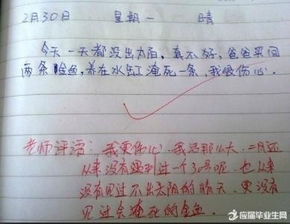 2月30日 星期一 晴
今天一天都没出太阳,真不好,爸爸买回
两条金鱼,养在水缸淹死一条,我很伤心。
老师评语:我更伤心,我活那么大,二月还
从来没有遇到过一个30号呢,也从来
没有见过不出太阳的晴天,更没有
见过会淹死的金鱼
应届毕业生网